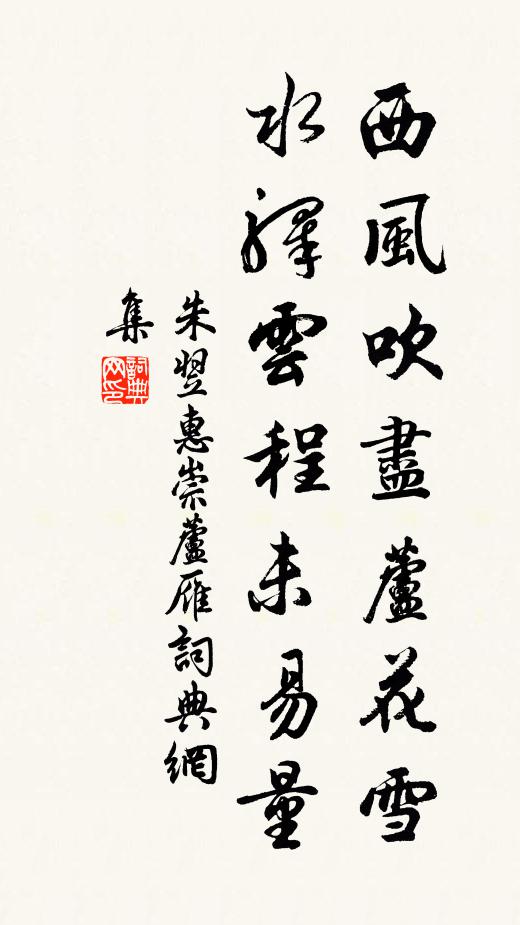 西風吹盡蘆花雪
水驛雲程未易量
朱翌惠崇蘆雁詞典網
集
詞典
网印